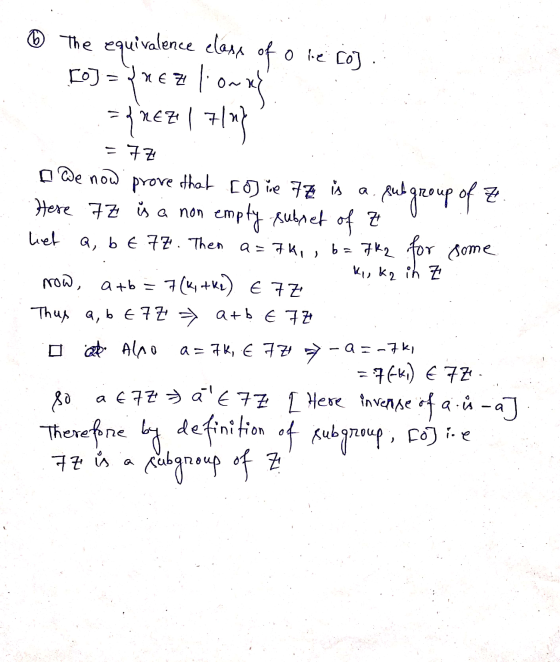 ⓑ The equivalence class of 0 i.e [0].
[0] = {x ∈ ℤ | 0 ~ x}
= {x ∈ ℤ | 7|x}
= 7ℤ
□ We now prove that [0] ie 7ℤ is a subgroup of ℤ.
Here 7ℤ is a non empty subset of ℤ
Let a, b ∈ 7ℤ. Then a = 7k₁, b = 7k₂ for some
k₁, k₂ in ℤ
Now, a+b = 7(k₁+k₂) ∈ 7ℤ
Thus a, b ∈ 7ℤ ⇒ a+b ∈ 7ℤ
□ Also a = 7k₁ ∈ 7ℤ ⇒ -a = -7k₁
= 7(-k₁) ∈ 7ℤ.
So a ∈ 7ℤ ⇒ a⁻¹ ∈ 7ℤ [Here invense of a is -a]
Therefore by definition of subgroup, [0] i.e
7ℤ is a subgroup of ℤ